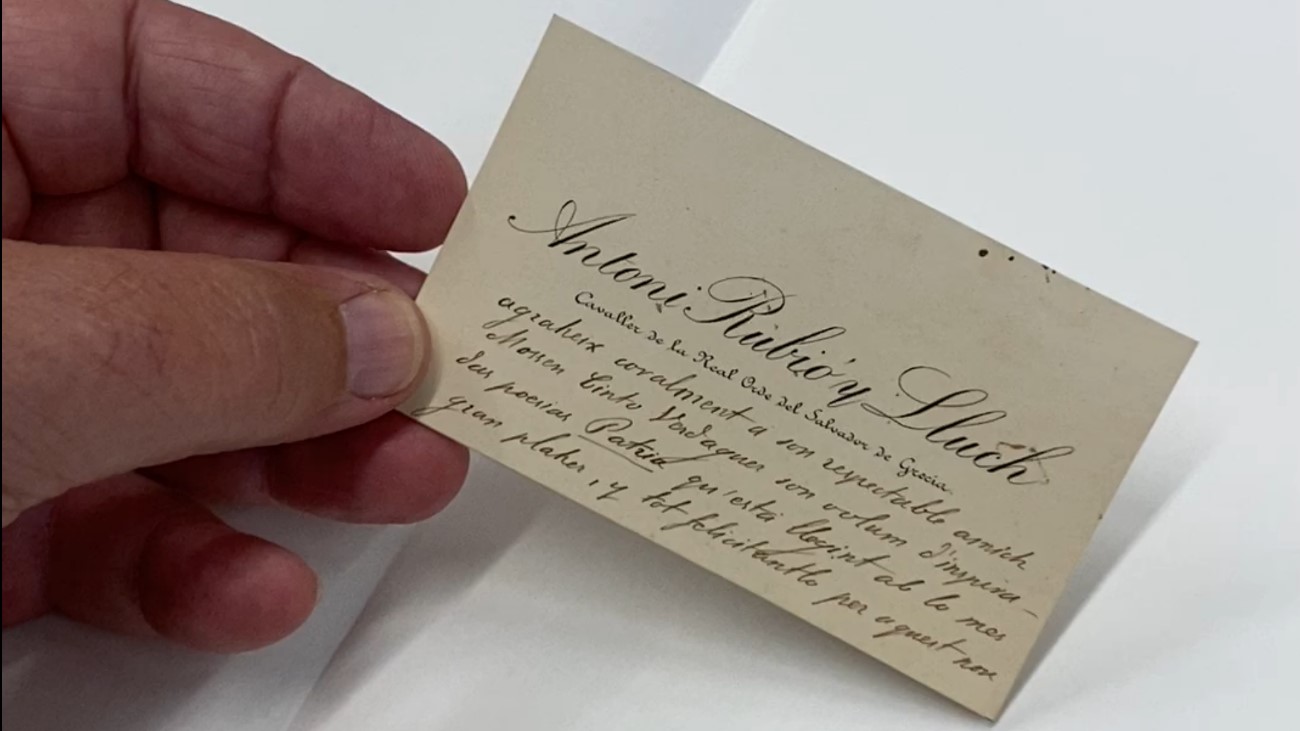 Antoni Rubió y Lluch
Cavaller de la Real Orde del Salvador de Grecia.
agraheix coralment a son respectable amich
Mossen Cinto Verdaguer son volum d'inspira-
das poesias Patria qu'está llegint ab lo mes
gran plaher, y tot felicitantlo per aquest nou